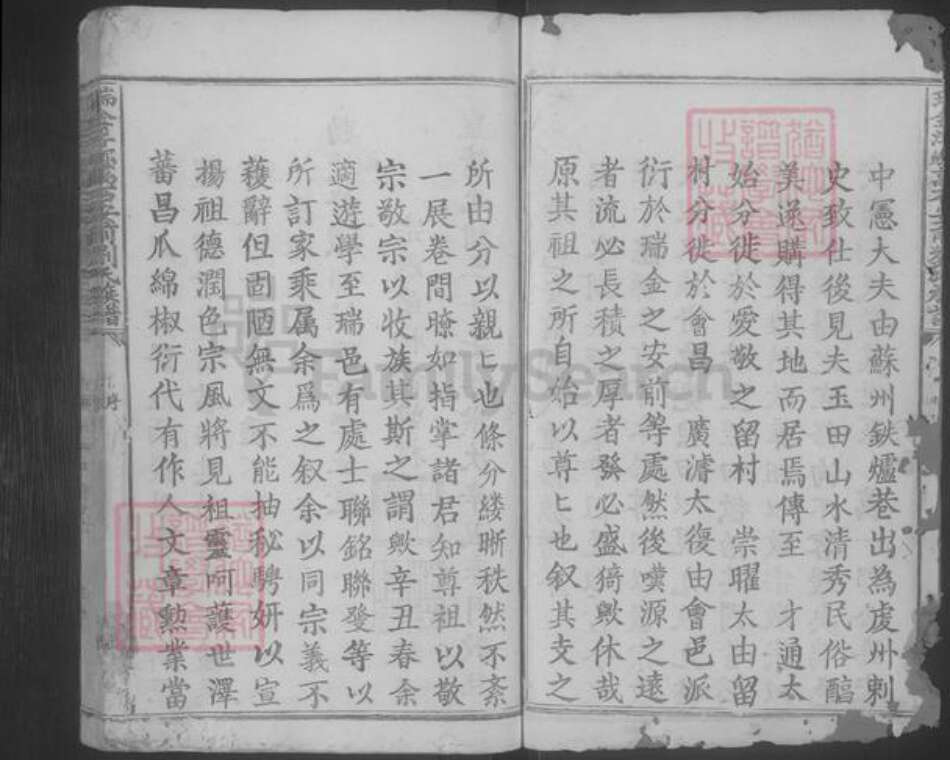 中憲大夫由蘇州鉄爐巷出為虔州剌
史致仕後見夫玉田山水清秀民俗醕
美遂購得其地而居焉傳至 才通太
始分徙於愛敬之留村 崇曜太由留
村分徙於會昌 廣濬太復由會邑派
衍於瑞金之安前等處然後嘆源之遠
者流必長積之厚者發必盛猗歟休哉
原其祖之所自始以尊尊也叙其支之
所由分以親親也條分縷晰秩然不紊
一展卷間瞭如指掌諸君知尊祖以敬
宗敬宗以收族其斯之謂歟辛丑春余
適遊學至瑞邑有處士聯銘聯發等以
所訂家乘属余爲之叙余以同宗義不
獲辭但固陋無文不能抽秘騁妍以宣
揚祖德潤色宗風將見祖靈呵護世澤
蕃昌爪綿椒衍代有作人文章勲業當
FamilySearch